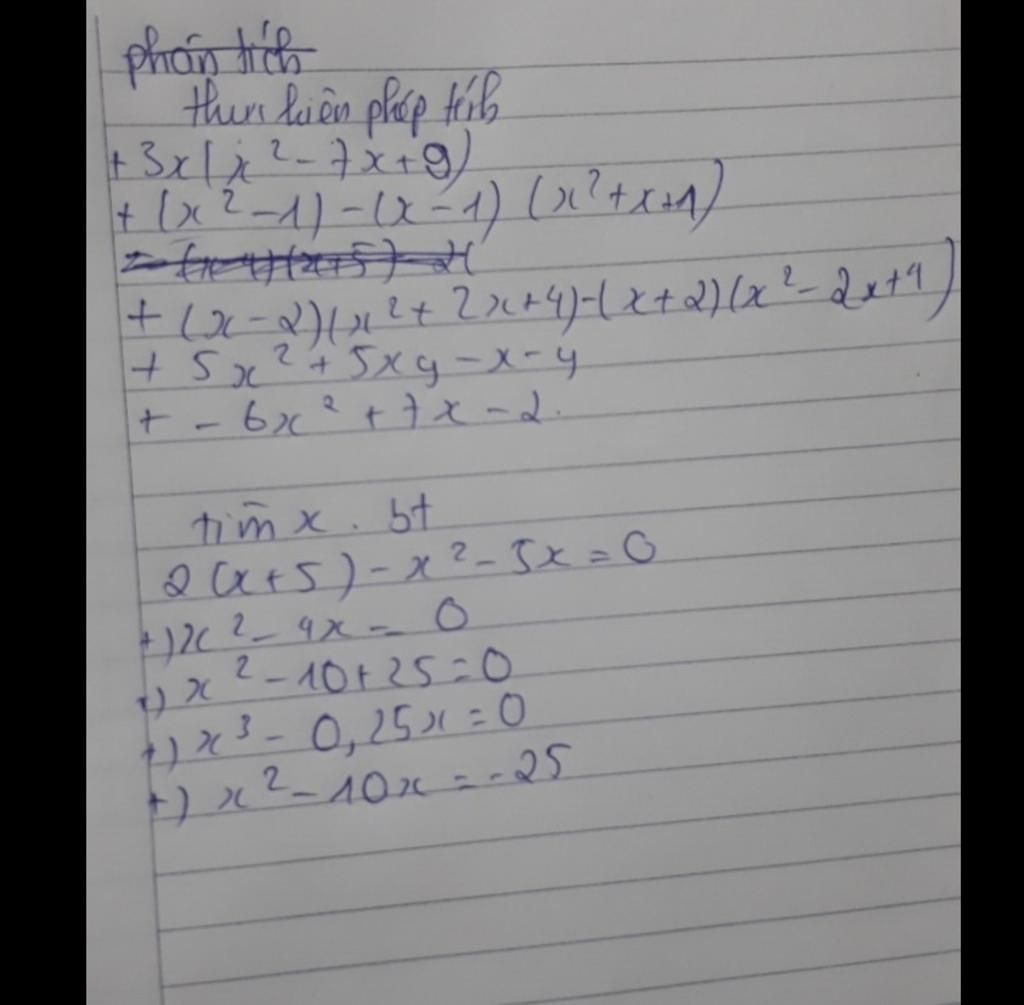 phân tích
thực hiện phép tính
+ 3x(x² - 7x + 9)
+ (x² - 1) - (x - 1) (x² + x + 1)
+ (x - 2)(x² + 2x + 4) - (x + 2)(x² - 2x + 4)
+ 5x² + 5xy - x - y
+ - 6x² + 7x - 2.
tìm x. bt
2(x + 5) - x² - 5x = 0
+) x² - 4x = 0
+) x² - 10 + 25 = 0
+) x³ - 0,25x = 0
+) x² - 10x = -25